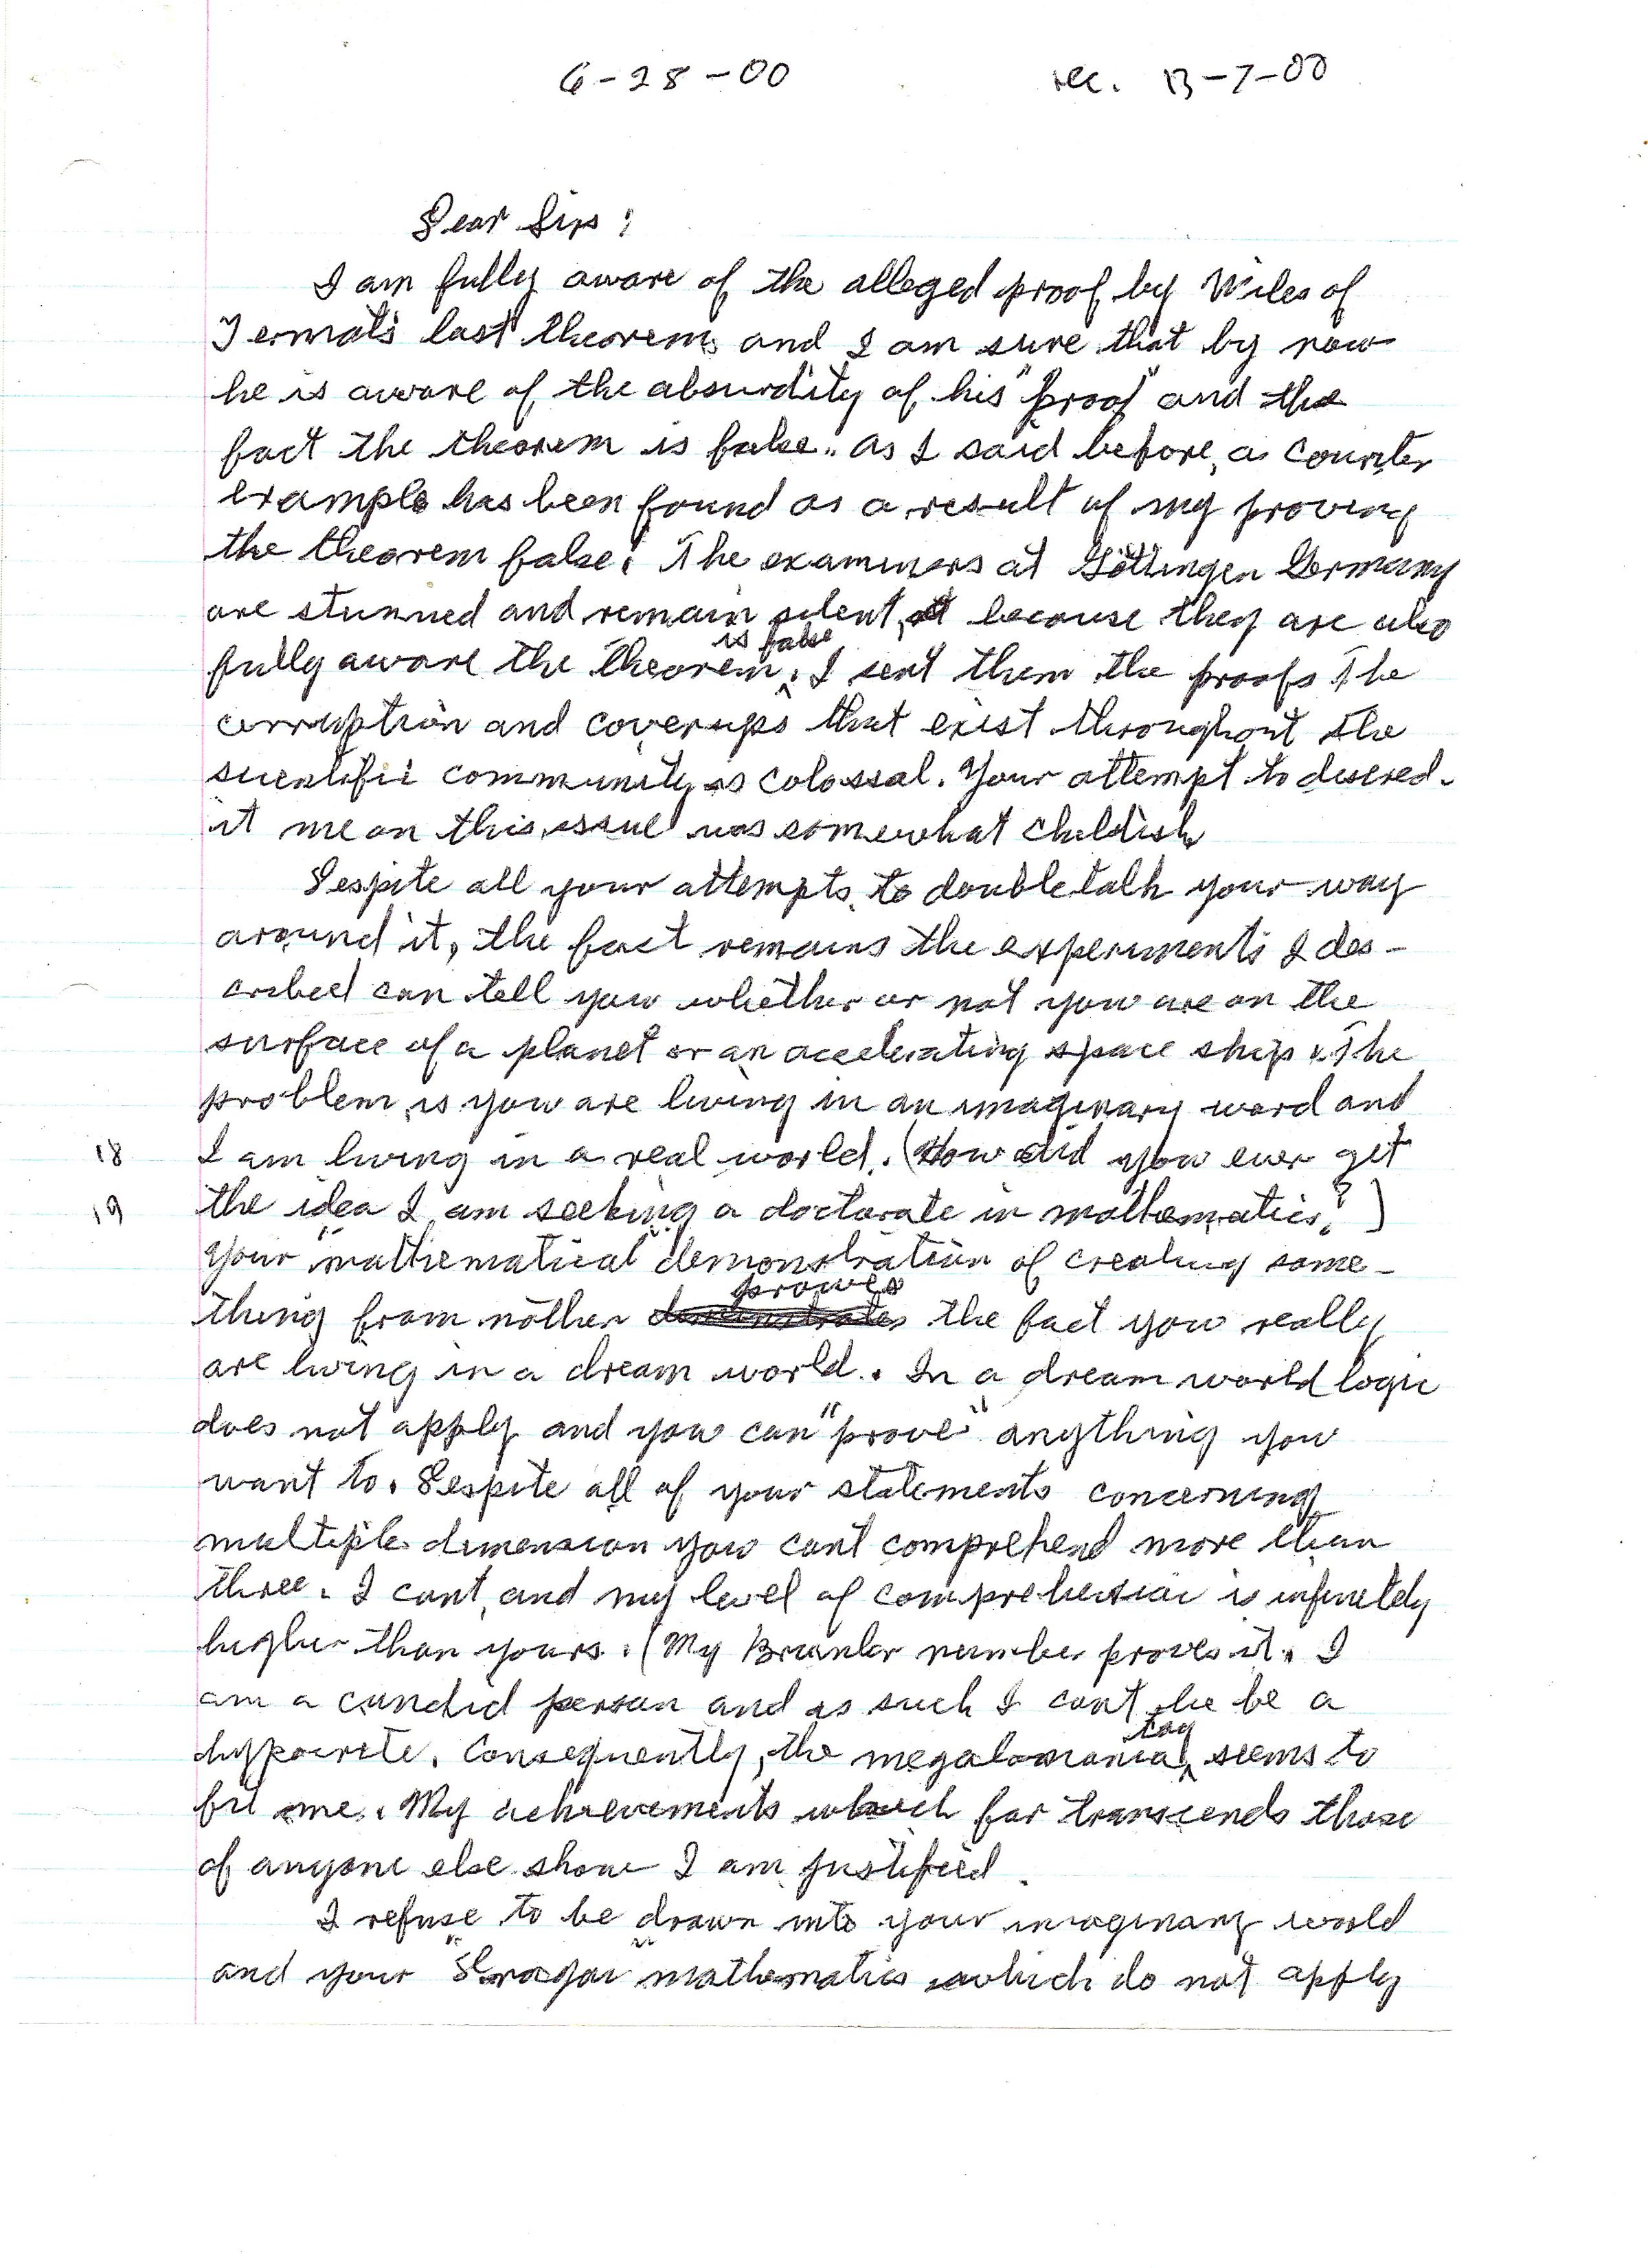 6-28-00 rec. 13-7-00
Dear Sir:
I am fully aware of the alleged proof by Wiles of
Fermat's last theorem and I am sure that by now
he is aware of the absurdity of his "proof" and the
fact the theorem is false. As I said before, a counter
example has been found as a result of my proving
the theorem false. The examiners at Göttingen Germany
are stunned and remain silent because they are also
fully aware the theorem is false. I sent them the proofs The
corruption and coverups that exist throughout the
scientific community is colossal. Your attempt to discred-
it me on this issue was somewhat childish
Despite all your attempts to doubletalk your way
around it, the fact remains the experiments I des-
cribed can tell you whether or not you are on the
surface of a planet or an accelerating space ship. The
problem is you are living in an imaginary word and
18 I am living in a real world. (How did you ever get
19 the idea I am seeking a doctorate in mathematics?)
Your "mathematical" demonstration of creating some-
thing from nothen proves the fact you really
are living in a dream world. In a dream world logic
does not apply and you can "prove" anything you
want to. Despite all of your statements concerning
multiple dimension you cant comprehend more than
three. I cant, and my level of comprehension is infinitely
higher than yours. (My Brunler number proves it. I
am a candid person and as such I cant be a
hypocrite. Consequently, the megalomania tag seems to
fit me. My achievements which far transcends those
of anyone else show I am justified.
I refuse to be drawn into your imaginary world
and your mathematics which do not apply